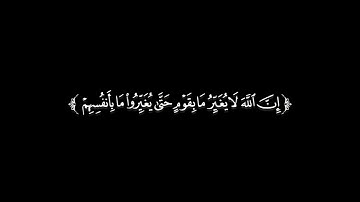 ﴿ إِنَّ ٱللَّهَ لَا يُغَيِّرُ مَا بِقَوْمٍ حَتَّىٰ يُغَيِّرُوا۟ مَا بِأَنفُسِهِمْ ﴾